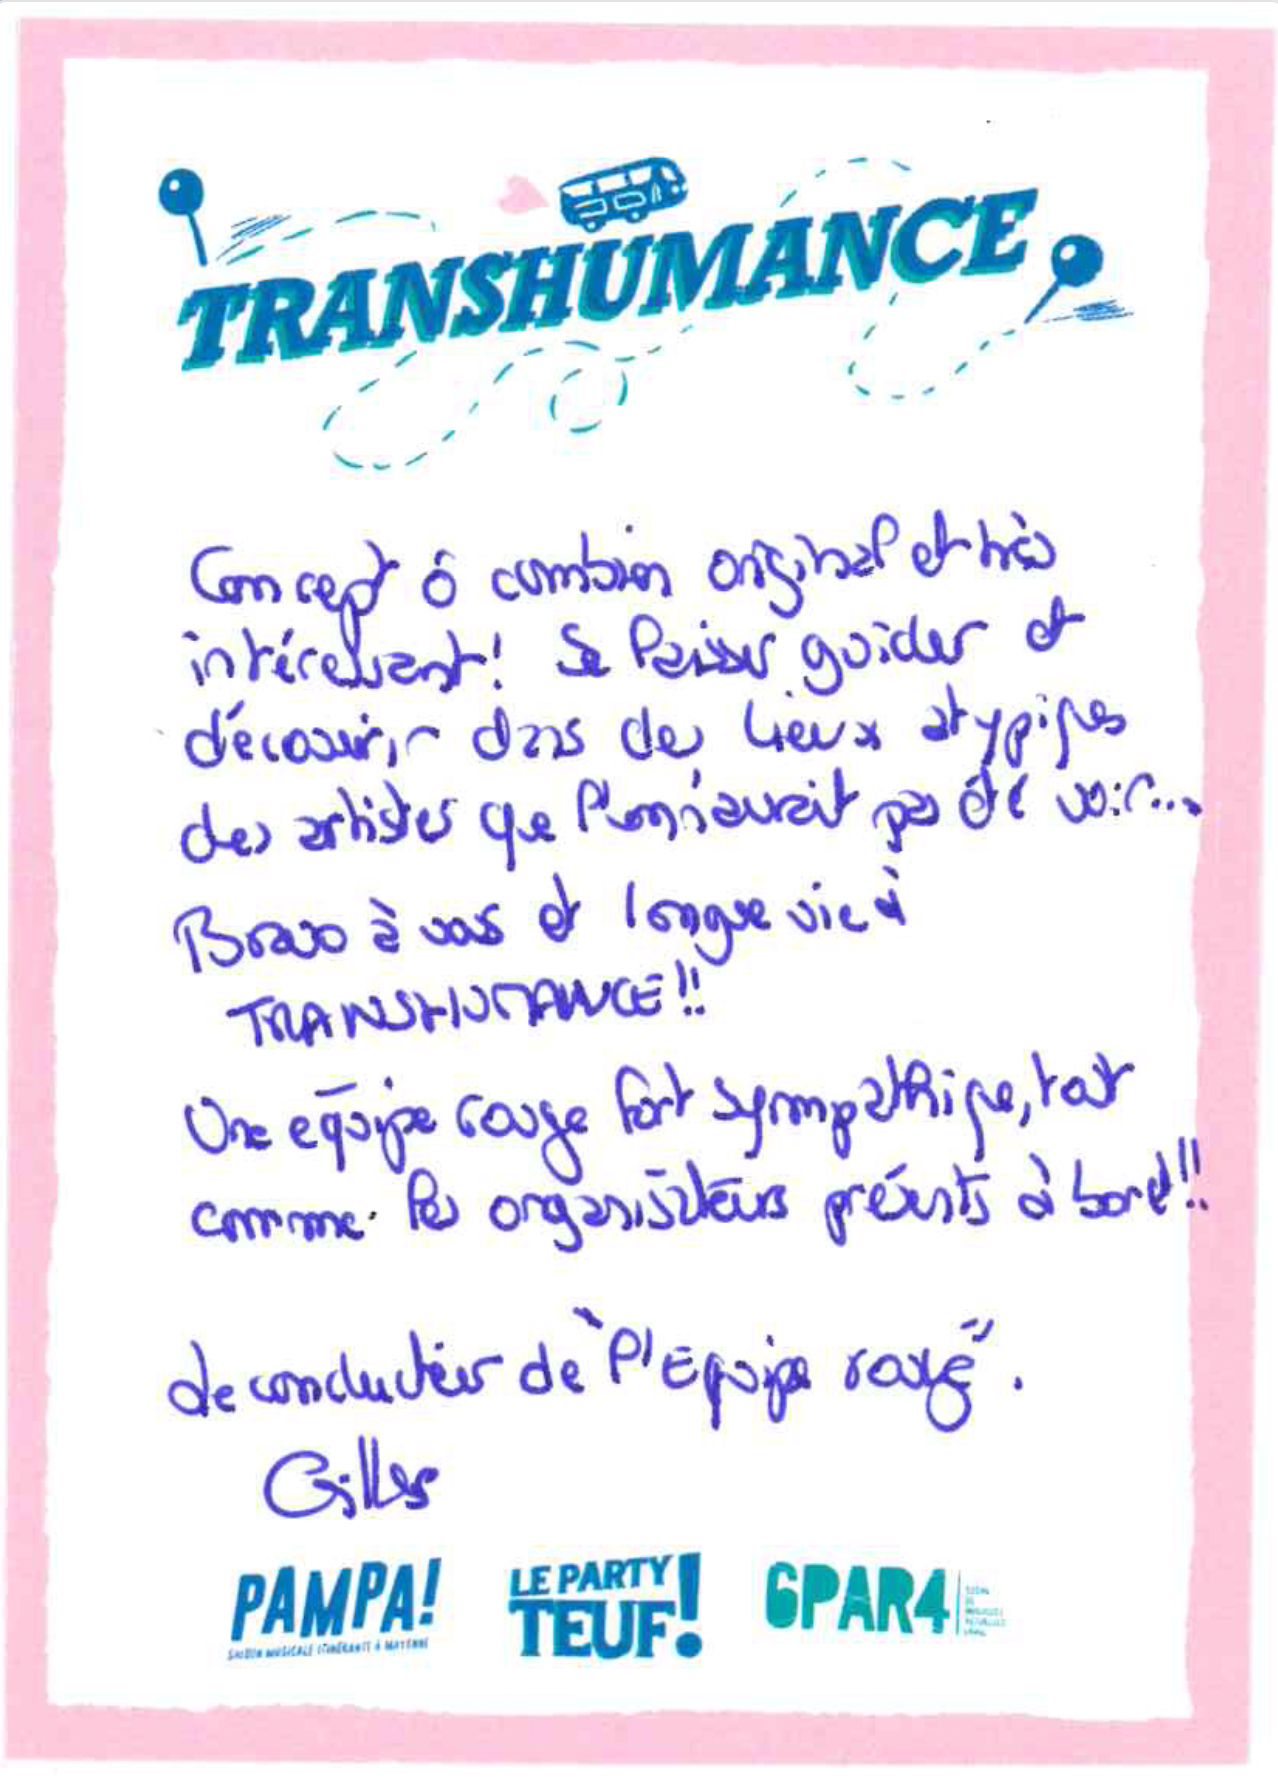 TRANSHUMANCE
Concept ô combien original et très
intéressant! Se laisser guider et
découvrir dans des lieux atypiques
des artistes que l'on n'aurait pas été voir...
Bravo à vous et longue vie à
TRANSHUMANCE!!
Une équipe rouge fort sympathique, tout
comme les organisateurs présents à bord!!
Le conducteur de "l'Equipe rouge".
Gilles
PAMPA!
SAISON MUSICALE ITINÉRANTE À MAYENNE
LE PARTY
TEUF!
6PAR4